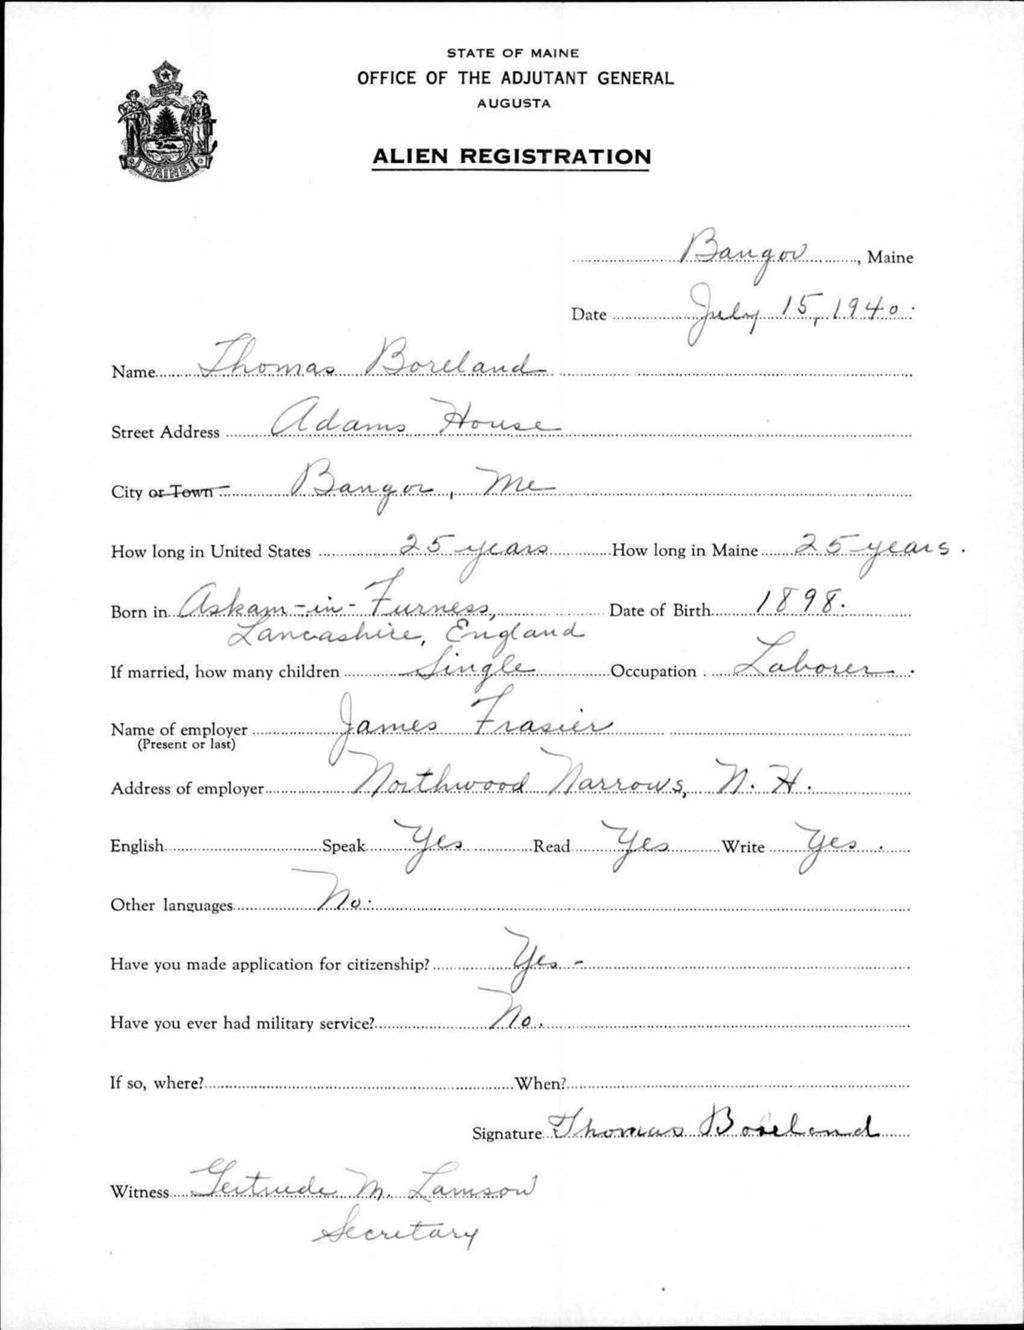 STATE OF MAINE
OFFICE OF THE ADJUTANT GENERAL
AUGUSTA
ALIEN REGISTRATION
MAINE
Bangor, Maine
Date July 15, 1940.
Name Thomas Boreland
Street Address Adams House
City or Town Bangor, Me
How long in United States 25 years How long in Maine 25 years.
Born in Askam-in-Furness, Date of Birth 1898.
Lancashire, England
If married, how many children Single Occupation Laborer.
Name of employer James Frasier
(Present or last)
Address of employer Northwood Narrows, N. H.
English Speak Yes Read Yes Write Yes.
Other languages No.
Have you made application for citizenship? Yes -
Have you ever had military service? No.
If so, where? When?
Signature Thomas Boreland
Witness Gertrude M. Lamson
Secretary